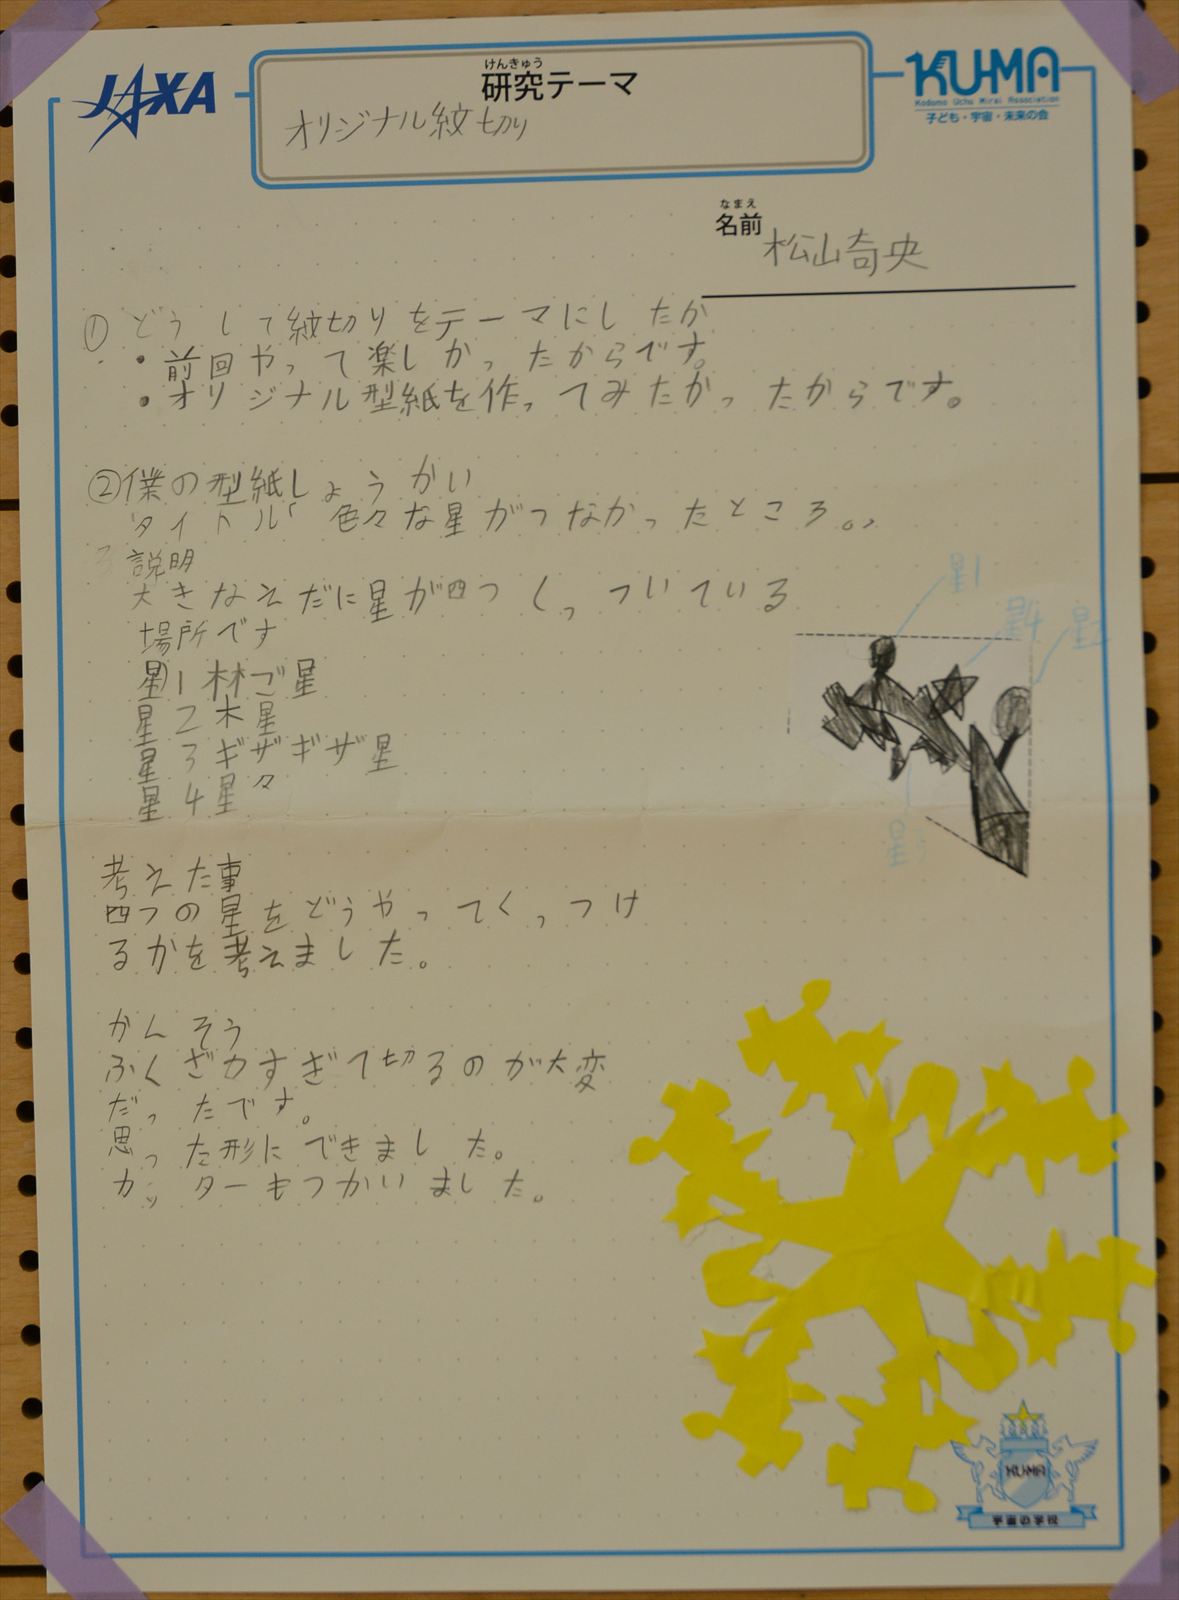 JAXA
けんきゅう
研究テーマ
オリジナル紋切り
KU-MA
Kodomo Uchu Mirai Association
子ども・宇宙・未来の会
なまえ
名前
松山奇央
①どうして紋切りをテーマにしたか
・前回やって楽しかったからです。
・オリジナル型紙を作ってみたかったからです。
②僕の型紙しょうかい
タイトル「色々な星がつながったところ。」
説明
大きなえだに星が四つくっついている
場所です
星1 林ご星
星2木星
星3ギザギザ星
星4星々
星1
星4
星2
星3
考えた事
四つの星をどうやってくっつけ
るかを考えました。
かんそう
ふくざカすぎて切るのが大変
だったです。
思った形にできました。
カッターもつかいました。
KU-MA
宇宙の学校